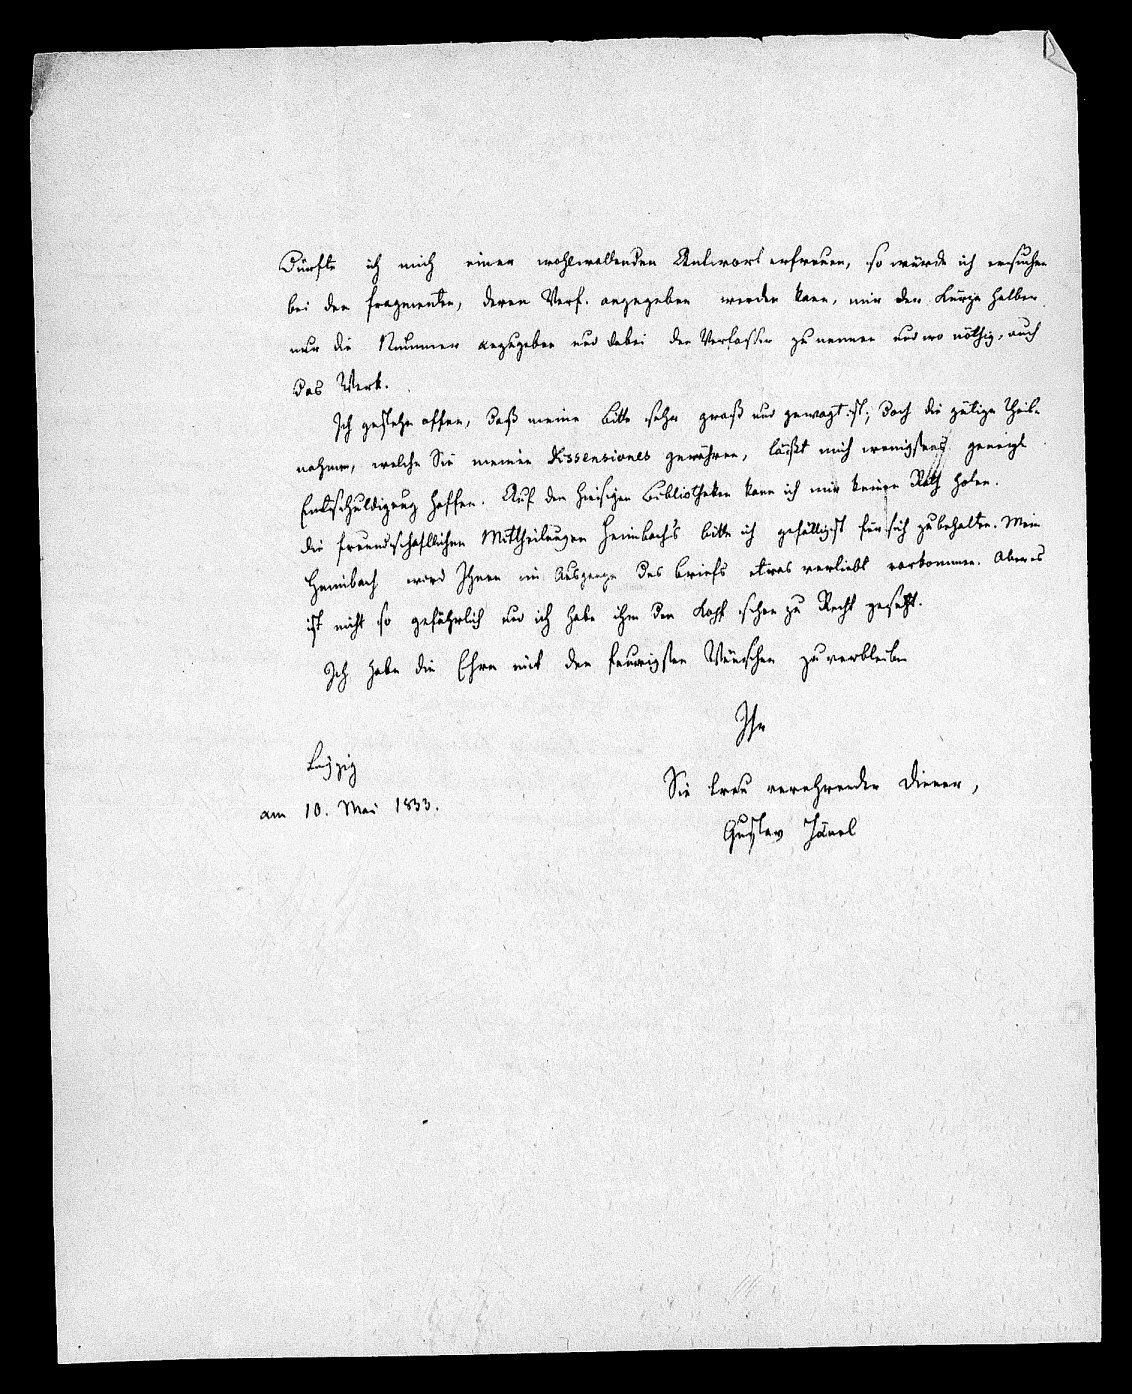 Dürfte ich mich einer wohlwollenden Antwort erfreuen, so würde ich ersuchen
bei den fragmenten, deren Verf. angegeben werden kann, mir der Kürze halber
nur die Nummer anzugeben und dabei den Verfasser zu nennen und wo nöthig, auch
das Werk.
Ich gestehe offen, daß meine Bitte sehr groß und gewagt ist; doch die gütige Theil-
nahme, welche Sie meinen Dissensiones gewähren, läßt mich wenigstens geneigte
Entschuldigung hoffen. Auf den hiesigen Bibliotheken kann ich mir keinen Rath holen.
Die freundschaftlichen Mittheilungen Heimbach's bitte ich gefälligst für sich zu behalten. Mein
Heimbach wird Ihnen im Auszuge des Briefs etwas verliebt vorkommen. Aber es
ist nicht so gefährlich und ich habe ihm den Kopf schon zu Recht gesetzt.
Ich habe die Ehre mit den feurigsten Wünschen zu verbleiben
Ihr
Leipzig
am 10. Mai 1833.
Sie treu verehrender Diener,
Gustav Hänel